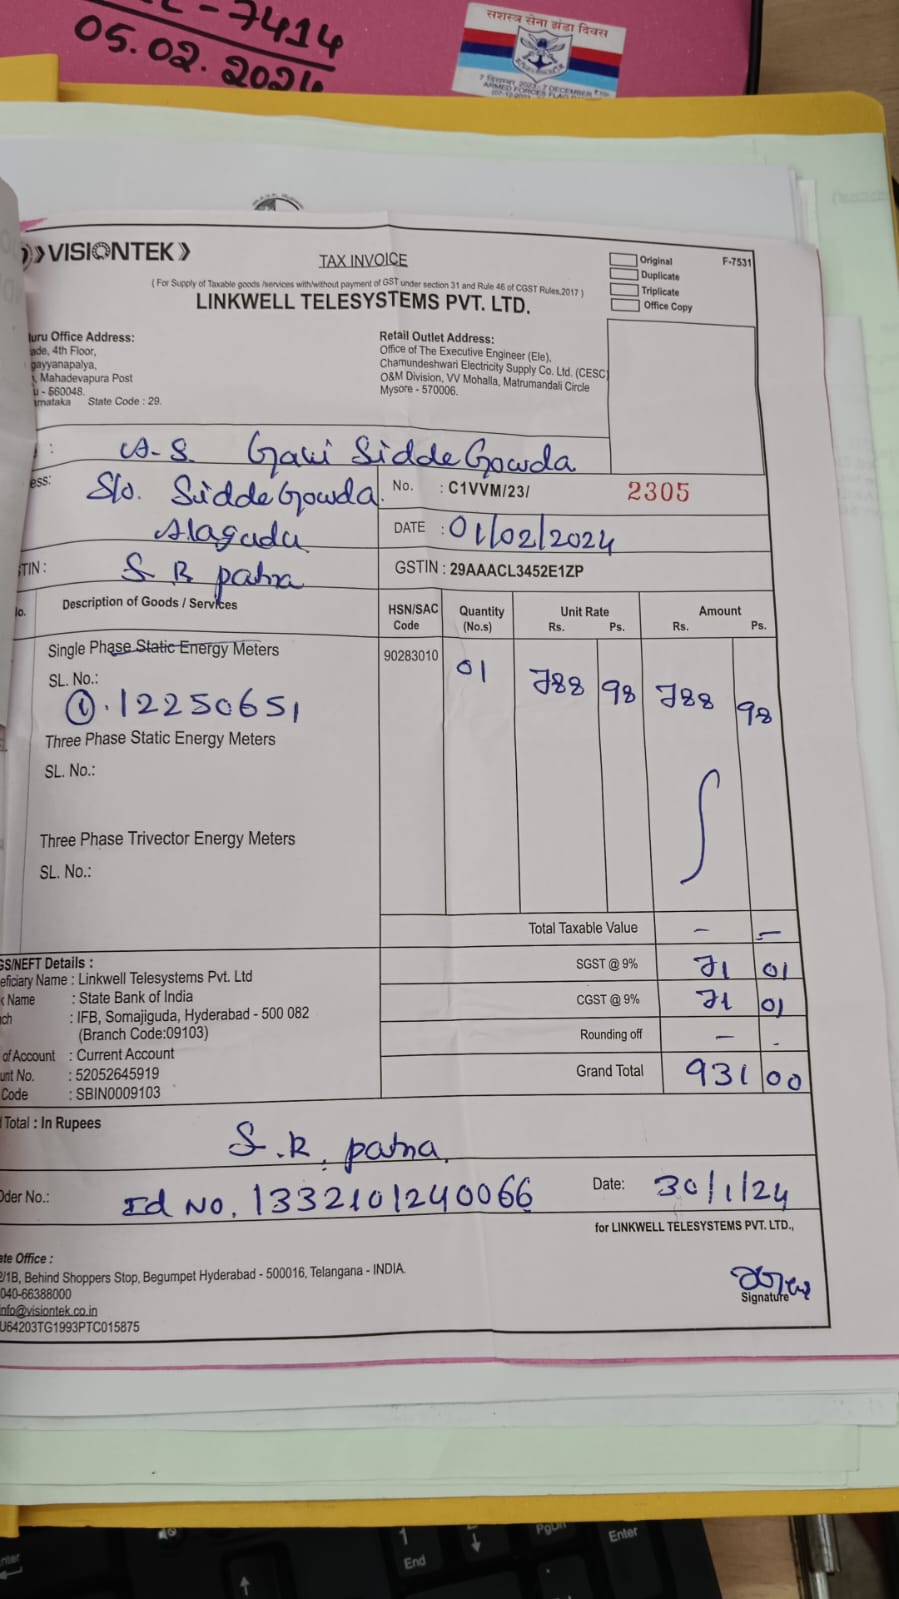 -7414
05.02.2024
सशस्त्र सेना झंडा दिवस
7 DECEMBER
ARMED FORCES FLAG
VISIONTEK
TAX INVOICE
Original
F-7531
Duplicate
Triplicate
Office Copy
( For Supply of Taxable goods /services with/without payment of GST under section 31 and Rule 46 of CGST Rules,2017 )
LINKWELL TELESYSTEMS PVT. LTD.
uru Office Address:
ade, 4th Floor,
gayyanapalya,
, Mahadevapura Post
u - 560048.
rnataka State Code : 29.
Retail Outlet Address:
Office of The Executive Engineer (Ele),
Chamundeshwari Electricity Supply Co. Ltd. (CESC)
O&M Division, VV Mohalla, Matrumandali Circle
Mysore - 570006.
: A.S. Gavi Sidde Gowda
ess: S/o. Sidde Gowda
No. : C1VVM/23/ 2305
Alagudu
DATE : 01/02/2024
STIN : S R patna
GSTIN : 29AAACL3452E1ZP
lo. Description of Goods / Services HSN/SAC Code Quantity (No.s) Unit Rate Rs. Ps. Amount Rs. Ps.
Single Phase Static Energy Meters 90283010 01 788 98 788 98
SL. No.:
① . 12250651
Three Phase Static Energy Meters
SL. No.:
Three Phase Trivector Energy Meters
SL. No.:
Total Taxable Value - -
GS/NEFT Details :
eficiary Name : Linkwell Telesystems Pvt. Ltd
k Name : State Bank of India
ch : IFB, Somajiguda, Hyderabad - 500 082
(Branch Code:09103)
of Account : Current Account
unt No. : 52052645919
Code : SBIN0009103
SGST @ 9% 71 01
CGST @ 9% 71 01
Rounding off - -
Grand Total 931 00
Total : In Rupees
S.R. patna
Oder No.: Id No. 1332101240066 Date: 30/1/24
for LINKWELL TELESYSTEMS PVT. LTD.,
ate Office :
2/1B, Behind Shoppers Stop, Begumpet Hyderabad - 500016, Telangana - INDIA.
040-66388000
info@visiontek.co.in
U64203TG1993PTC015875
Signature
1
End
PgDn
Enter